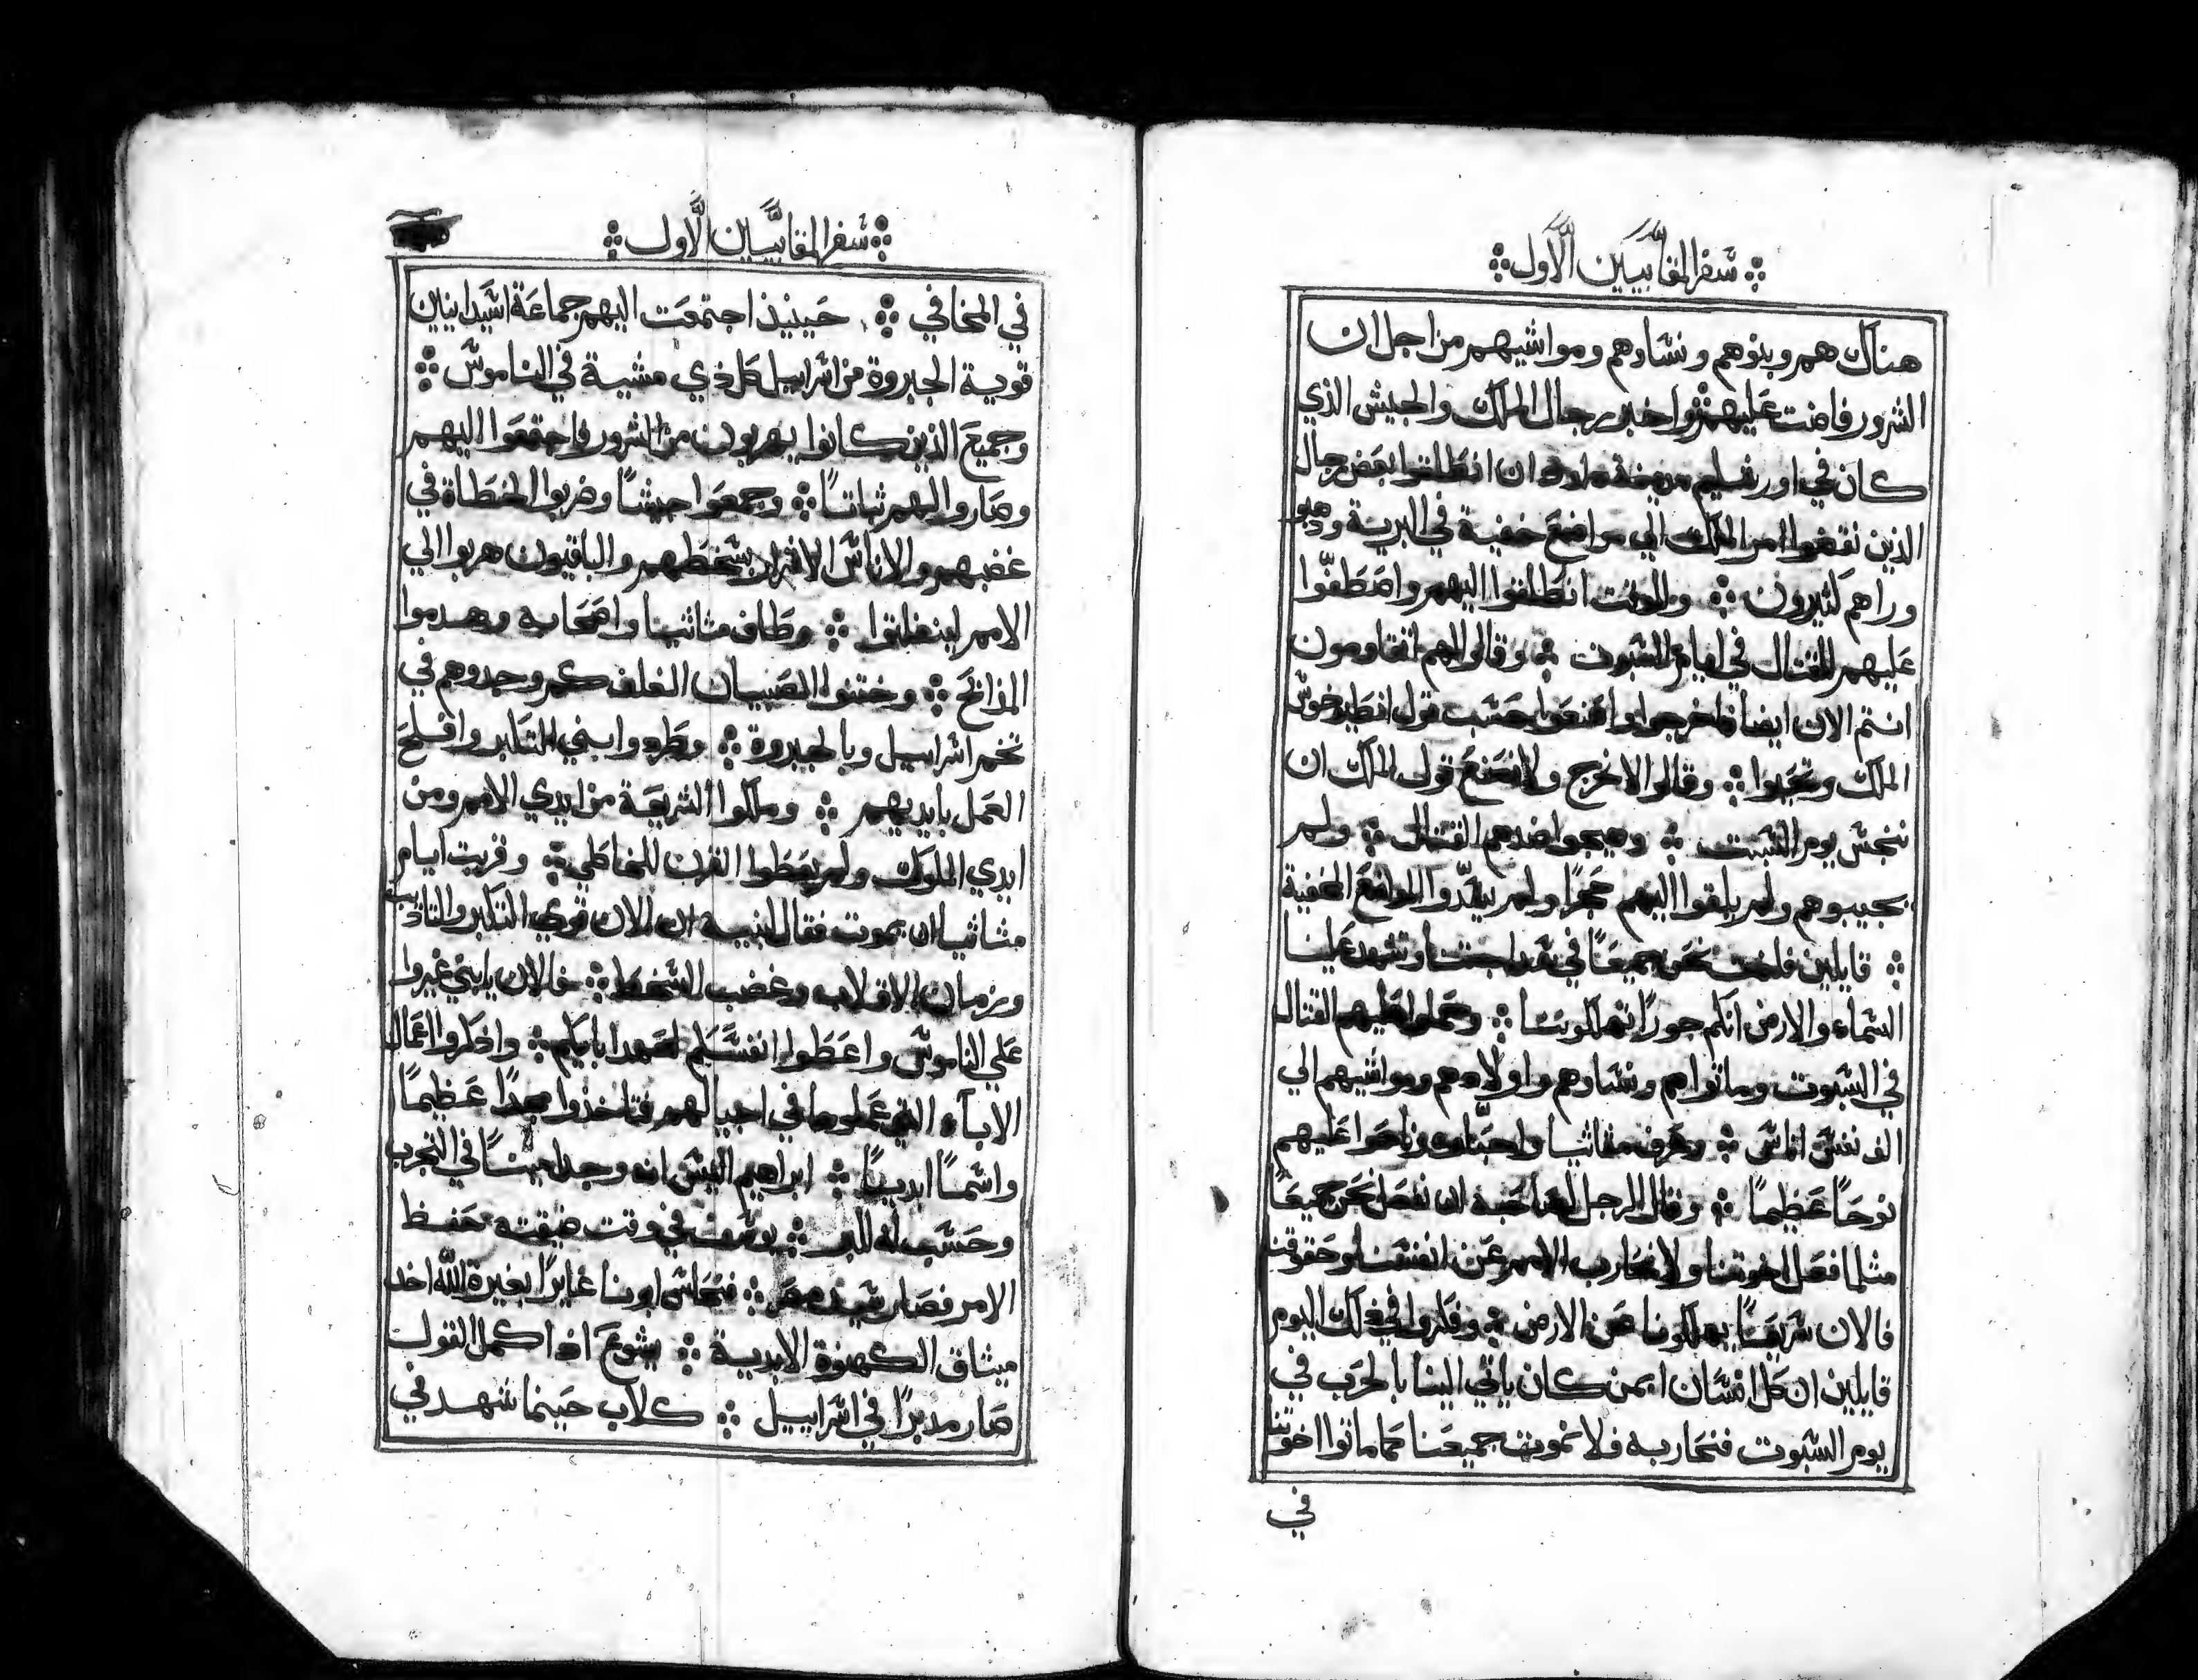 سفر المقابيين الاول
هناك هم وبنوهم ونساوهم ومواشيهم من اجل ان
الشرور فاضت عليهم واخبر رجال الملك والجيش الذي
كان في اورشليم مدينة داود ان انطلقوا بعض رجال
الذين نقضوا امر الملك الي مواضع خفية في البرية وذهبوا
وراهم كثيرون وللوقت انطلقوا اليهم واصطفوا
عليهم للقتال في ايام السبوت وقالوا لهم اتقاومون
انتم الان ايضا فاخرجوا واصنعوا حسب قول انطيوخوس
الملك وتحيوا وقالوا لا نخرج ولا نصنع قول الملك ان
ننجس يوم السبت وهيجوا ضدهم القتال ولم
يجيبوهم ولم يلقوا اليهم حجرا ولم يسدوا المواضع الخفية
قايلين فلنمت نحن جميعا في وتشهد علينا
السماء والارض انكم جورا تهلكوننا وحملوا عليهم القتال
في السبوت وماتوا هم ونساوهم واولادهم ومواشيهم الي
الف نفس اناس وعرف مثاثيا واحباوه وناحوا عليهم
نوحا عظيما وقال الرجل لصاحبه ان نفعل نحن جميعا
مثلما فعل اخوتنا ولا نحارب الامم عن انفسنا وحقوقنا
فالان سريعا يهلكونا عن الارض وفكروا في ذلك اليوم
قايلين ان كل انسان ايمن كان ياتي الينا بالحرب في
يوم السبوت فنحاربه فلا نموت جميعنا كما ماتوا اخوتنا
في
سفر المقابيين الاول
في المخافي حينيذ اجتمعت اليهم جماعة اشيدانيين
قوية الجبروة من اسراييل كل ذي مشية في الناموس
وجميع الذين كانوا يهربون من الشرور فاجتمعوا اليهم
وصاروا لهم ثباتا وجمعوا جيشا وضربوا الخطاة في
غضبهم والاناس الاشرار بسخطهم والباقيون هربوا الي
الامم لينفلتوا وطاف مثاثيا واصحابه وهدموا
المذابح وختنوا الصبيان الغلف كم وجدوهم في
تخم اسراييل وبالجبروة وطردوا بني التكبر وافلح
العمل بايديهم وملكوا الشريعة من ايدي الامم ومن
ايدي الملوك ولم يعطوا القرن للخاطي وقربت ايام
مثاثيا ان يموت فقال لبنيه ان الان قوي التكبر والتاديب
وزمان الانقلاب وغضب السخط فالان يا بني غيروا
علي الناموس واعطوا انفسكم لعهد ابايكم واذكروا اعمال
الابآء التي عملوها في اجيالهم فتاخذوا مجدا عظيما
واسما ابديا ابراهيم اليس انه وجد امينا في التجرب
وحسب له للبر يوسف في وقت ضيقته حفظ
الامر فصار سيد مصر فنحاس ابونا غايرا بغيرة الله اخد
ميثاق الكهنوة الابدية يشوع اذ اكمل القول
صار مدبرا في اسراييل كلاب حينما شهد في